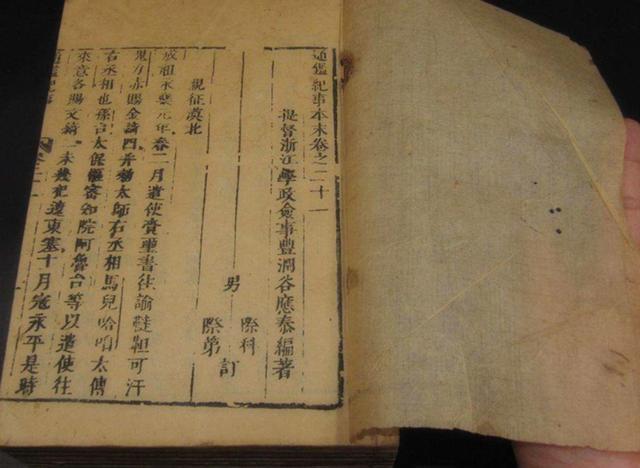 通鑑紀事本末卷之二十一
提督浙江學政僉事豐潤谷應泰編著
際科
男 訂
際第
親征漠北
成祖永樂元年春二月遣使賫璽書往諭韃靼可汗
鬼力赤賜金綺四并勑太師右丞相馬兒哈咱太傅
右丞相也孫台太保樞密知院阿魯台等以遣使往
來意各賜文綺一未幾犯遼東塞十月寇永平是時